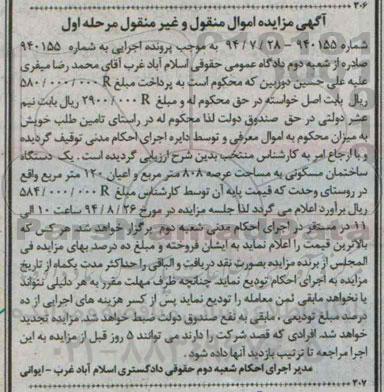 ۳۰۶
آگهی مزایده اموال منقول و غیر منقول مرحله اول
شماره ۹۴۰۱۵۵ – ۹۴/۷/۲۸ به موجب پرونده اجرایی به شماره ۹۴۰۱۵۵
صادره از شعبه دوم دادگاه عمومی حقوقی اسلام آباد غرب آقای محمد رضا میفری
علیه علی حسین دوربین که محکوم است به پرداخت مبلغ R ۵۸۰/۰۰۰/۰۰۰
ریال بابت اصل خواسته در حق محکوم له و مبلغ R ۲۹۰۰/۰۰۰ ریال بابت نیم
عشر دولتی در حق صندوق دولت لذا محکوم له در راستای تامین طلب خویش
به میزان محکوم به اموال معرفی و توسط دایره اجرای احکام مدنی توقیف گردیده
و با ارجاع امر به کارشناس منتخب بدین شرح ارزیابی گردیده است. یک دستگاه
ساختمان مسکونی به مساحت عرصه ۸۰۸ متر مربع و اعیان ۱۲۰ متر مربع واقع
در روستای وحدت که قیمت پایه آن توسط کارشناس مبلغ R ۵۸۴/۰۰۰/۰۰۰
ریال برآورد اعلام می گردد لذا جلسه مزایده در مورخ ۹۴/۸/۲۶ ساعت ۱۰ الی
۱۱ در مستقر در اجرای احکام مدنی شعبه دوم برگزار خواهد شد. هر کس که
بالاترین قیمت را اعلام نماید به ایشان فروخته و مبلغ ده درصد بهای مزایده فی
المجلس از برنده مزایده بصورت نقد دریافت و الباقی را حداکثر مدت یکماه از تاریخ
مزایده به اجرای احکام تودیع نماید. چنانچه ظرف مهلت مقرر به هر دلیلی نتواند
یا نخواهد مابقی ثمن معامله را تودیع نماید پس از کسر هزینه های اجرایی از ده
درصد مبلغ تودیعی، مابقی به نفع صندوق دولت ضبط خواهد شد. مزایده تجدید
خواهد شد. افرادی که قصد شرکت را دارند می توانند ۵ روز قبل از مزایده به این
اجرا مراجعه تا ترتیب بازدید آنها داده شود.
مدیر اجرای احکام شعبه دوم حقوقی دادگستری اسلام آباد غرب – ایوانی
۳۰۷